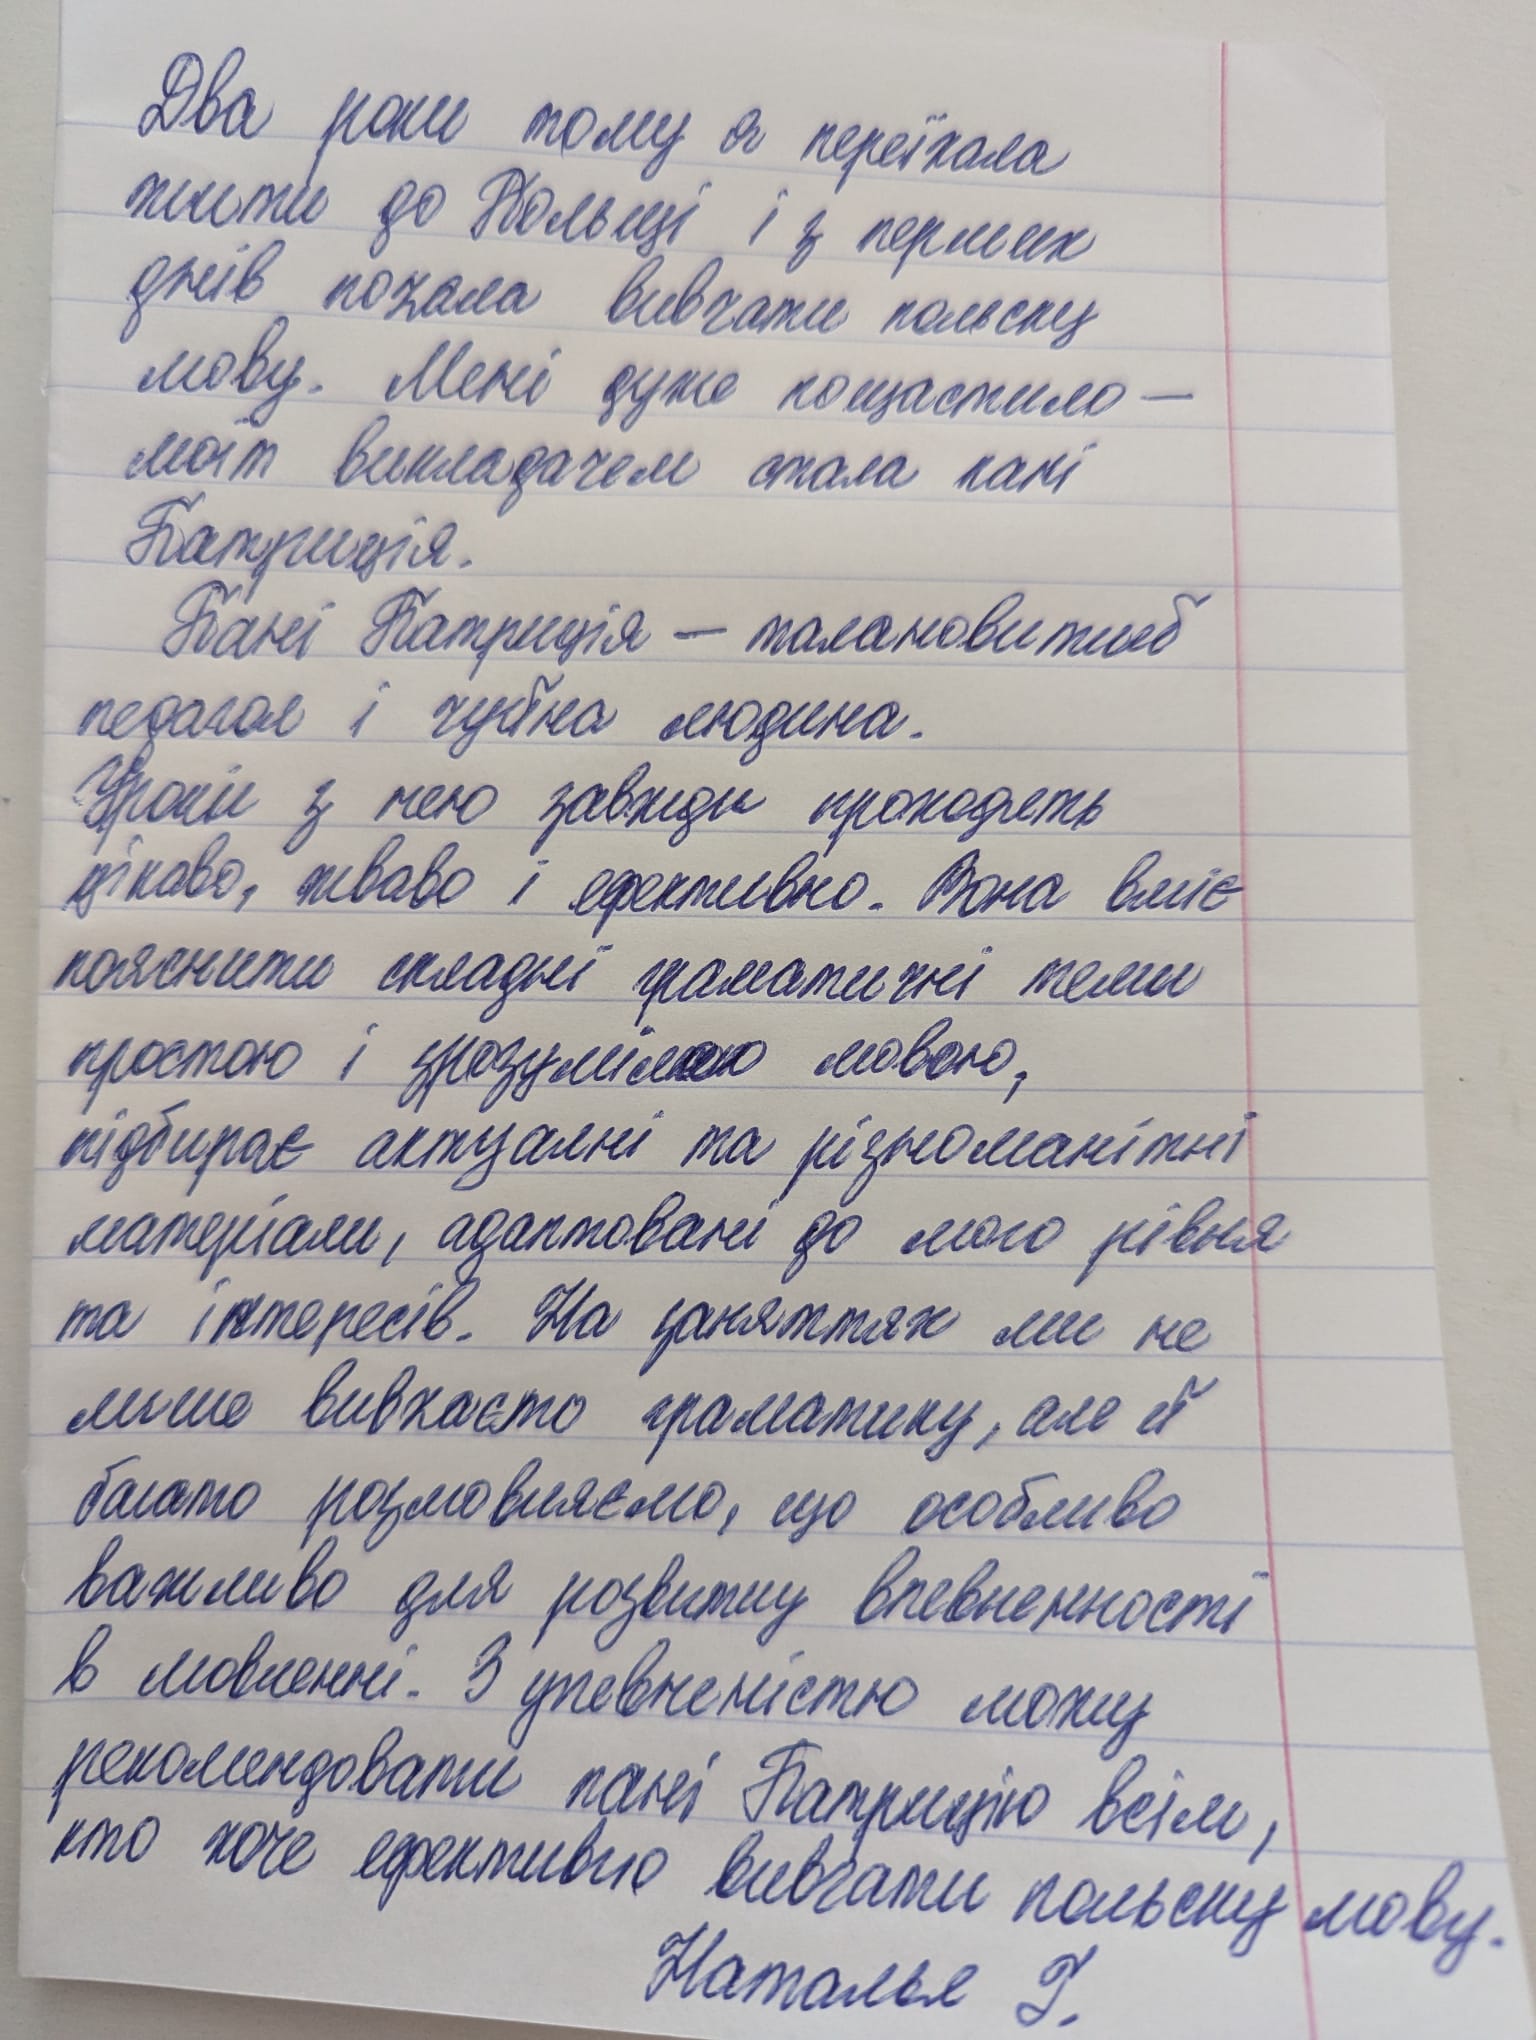 Два роки тому я переїхала
жити до Польщі і з перших
днів почала вивчати польску
мову. Мені дуже пощастило —
моїм викладачем стала пані
Патриція.
Пані Патриція — талановитий
педагог і чуйна людина.
Уроки з нею завжди проходять
цікаво, жваво і ефективно. Вона вміє
пояснити складні граматичні теми
простою і зрозумілою мовою,
підбирає актуалні та різноманітні
матеріали, адаптовані до мого рівня
та інтересів. На заняттях ми не
лише вивчаємо граматику, але й
багато розмовляємо, що особливо
важливо для розвитку впевненності
в мовленні. З упевненістю можу
рекомендовати пані Патрицію всім,
кто хоче ефективно вивчати польску мову.
Наталья Г.